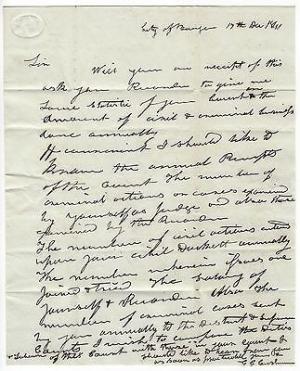 City of Bangor 17th Dec
Sir Will you on receipt of this
ask your Recorder to give me
some statistic of your Court &
amount of civil & criminal business
done annually
I should like to
know the annual Receipts
of the Court The number of
criminal actions or cases examined
by yourself as Judge and also those
examined by the Recorder
The number of civil actions entered
upon your civil Docket annually
The number wherein issues are
Joined & tried The Salary of
yourself & Recorder Also the
number of criminal cases sent
by you annually to the District &
Courts I wish to compare the Duties
& Salaries of this Court with those in your
should like to hear from you
as soon as